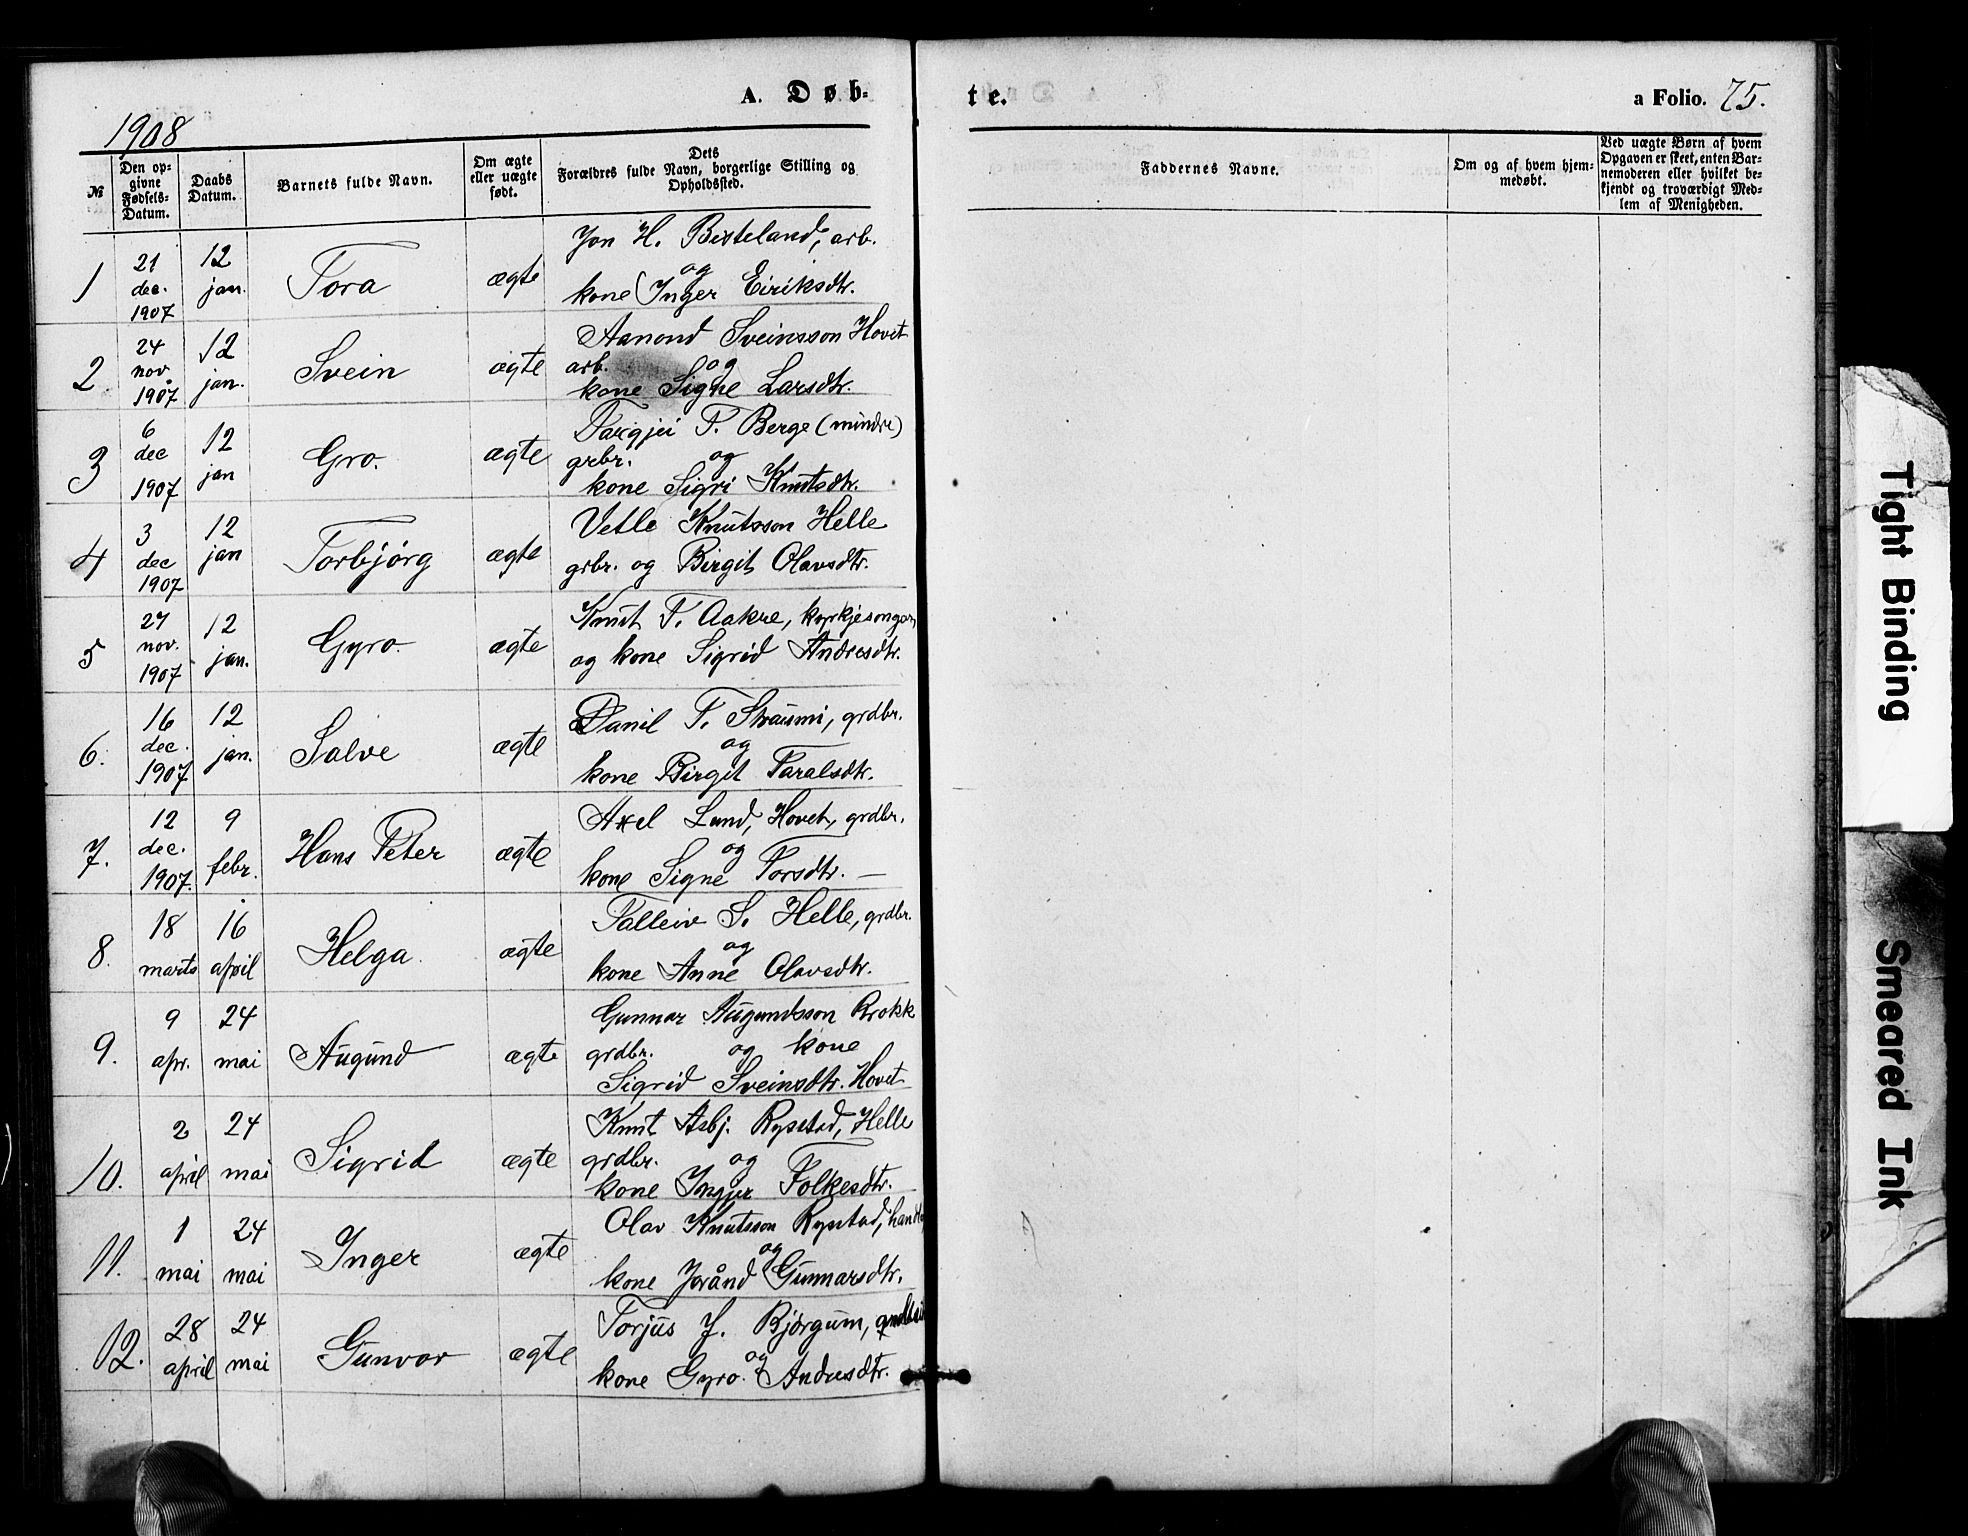 A. Døb-
te.
a Folio. 75.
1908
№
Den op-
givne
Fødsels-
Datum.
Daabs
Datum.
Barnets fulde Navn.
Om ægte
eller uægte
født.
Dets
Forældres fulde Navn, borgerlige Stilling og
Opholdssted.
Faddernes Navne.
Om og af hvem hjem-
medøbt.
Ved uægte Børn af hvem
Opgaven er skeet, enten Bar-
nemoderen eller hvilket be-
kjendt og troværdigt Med-
lem af Menigheden.
1 21 dec. 1907 12 jan. Tora ægte Jon H. Besteland, arb.
og
kone Inger Eiriksdtr.
2 24 nov. 1907 12 jan. Svein ægte Aanond Sveinsson Hovet
arb. og
kone Signe Larsdtr.
3 6 dec 1907 12 jan Gro. ægte Targjei T. Berge (mindre)
grbr. og
kone Sigri Knutsdtr.
4 3 dec 1907 12 jan Torbjörg ægte Vetle Knutsson Helle
grbr. og Birgit Olavsdtr.
5 27 nov. 1907 12 jan. Gyro. ægte Knut T. Aakre, kyrkjesongar,
og kone Sigrid Andresdtr.
6. 16 dec. 1907 12 jan. Salve ægte Danil T. Straumi, grdbr.
og
kone Birgit Taralsdtr.
7. 12 dec. 1907. 9 febr. Hans Peter ægte Axel Lund, Hovet, grdbr.
og
kone Signe Torsdtr. —
8. 18 marts 16 april Helga. ægte Talleiv S. Helle, grdbr.
og
kone Anne Olavsdtr.
9. 9 apr. 24 mai Augund ægte Gunnar Augundsson Brokk
grdbr. og kone
Sigrid Sveinsdtr. Hovet
10. 2 april 24 mai Sigrid ægte Knut Asbj. Rysstad, Helle
grdbr. og
kone Ingjer Folkesdtr.
11. 1 mai 24 mai Inger ægte Olav Knutsson Rysstad,
og
kone Jorånd Gunnarsdtr.
12. 28 april 24 mai Gunvor ægte Torjus J. Bjørgum,
og
kone Gyro. Andresdtr.
Tight Binding
Smeared Ink